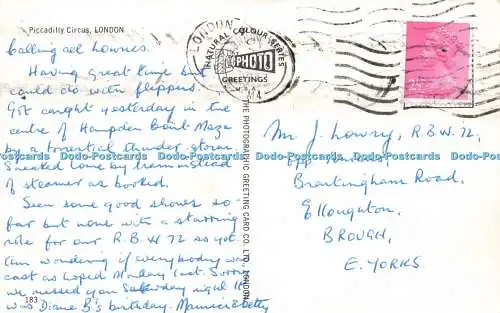 Piccadilly Circus, LONDON
Calling all Lowries.
Having great time but
could do with flippers.
Got caught yesterday in the
centre of Hampden Court Maze
by a torrential thunder storm.
Sneaked home by train instead
of steamer as booked.
Seen some good shows so
far but none with a starring
role for our R.B.W 72 so yet.
Am wondering if everybody was
cast as hoped Monday last. Sorry
we missed you Saturday night it
was Diane B's birthday. Maurice & Betty
183
THE PHOTOGRAPHIC GREETING CARD CO. LTD., LONDON
LONDON
NATURAL COLOUR SERIES
PHOTO
GREETINGS
Mr J. Lowry, R.B.W. 72,
Brantingham Road,
Elloughton,
BROUGH,
E. YORKS.
Dodo-Postcards Dodo-Postcards Dodo-Postcards Dodo-Postcards Dodo-Postcards